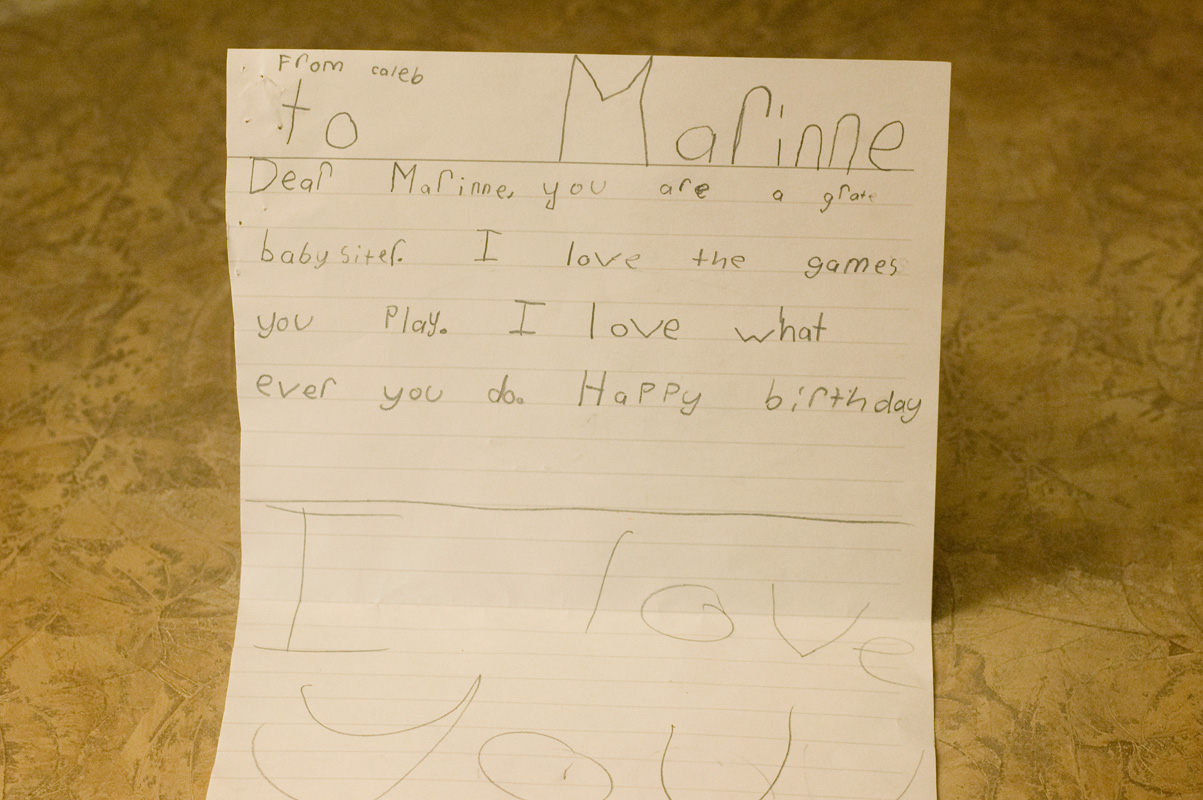 From caleb
to Marinne
Dear Marinne, you are a grate
baby siter. I love the games
you Play. I love what
ever you do. Happy birthday
I love
you